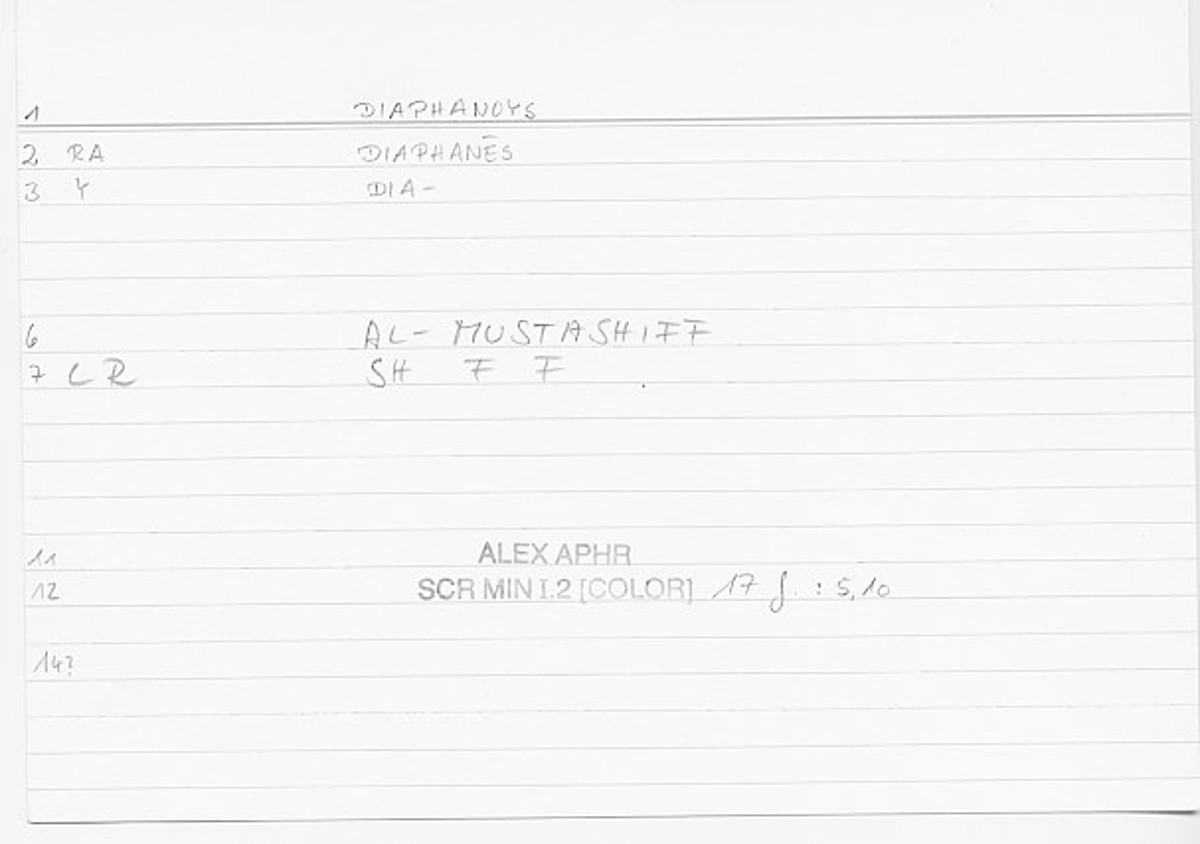 1 DIAPHANOYS
2 RA DIAPHANĒS
3 Y DIA-
6 AL- MUSTASHIFF
7 LR SH F F
11 ALEX APHR
12 SCR MIN I.2 [COLOR] 17 f. : 5,10
14?